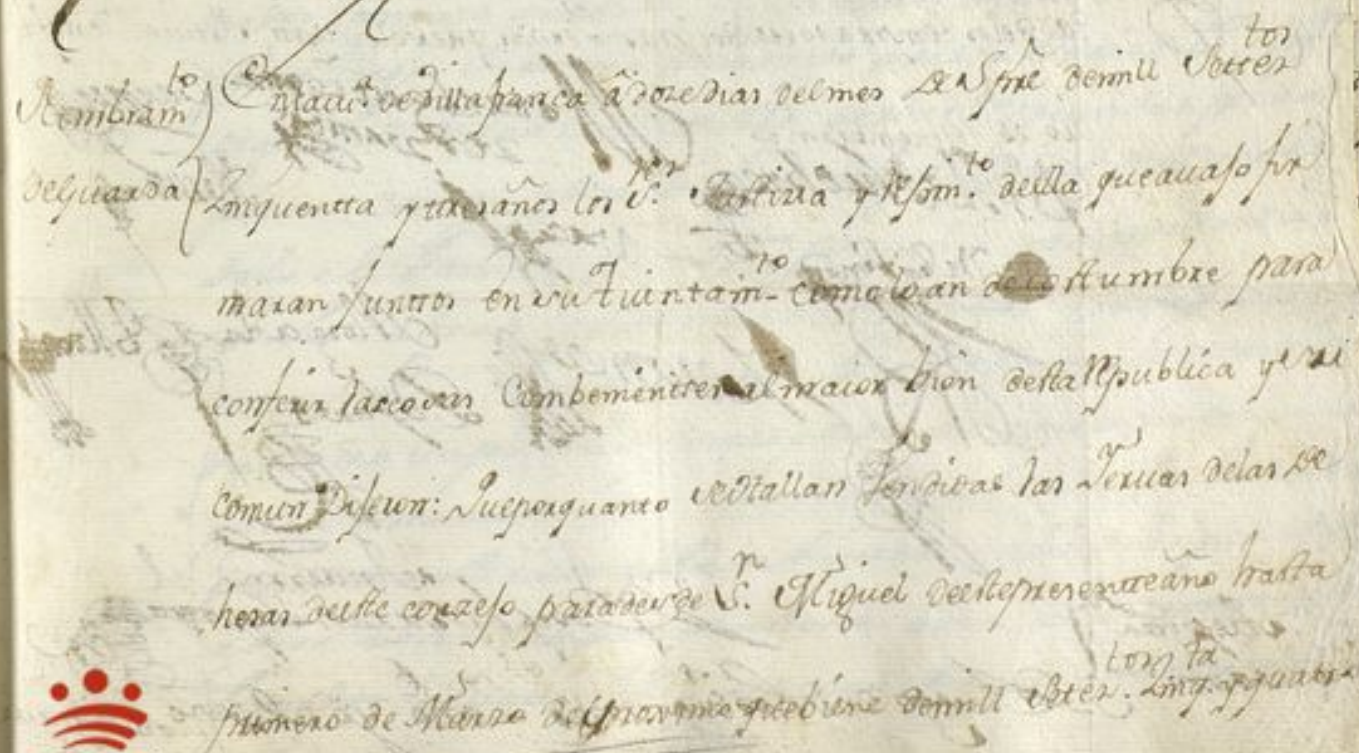 Nombram.to
de guarda
En la ciu.d de Villafranca â doze dias del mes de Spre de mill Setter.tos
Zinquentta y tres años los S.res Justizia y Rejim.to de ella que avajo fir
maran Junttos en su Aiuntam.to como lo an de costumbre para
conferir las cosas Combenienttes al maior bien desta Republica y
comun Dijeron: Que por quanto se Hallan Vendidas las Yervas de las De
hesas deste conzejo para desde S.n Miguel de este presentte año hasta
primero de Marzo del proximo que biene de mill Seter.tos Zinq.ta y quatro